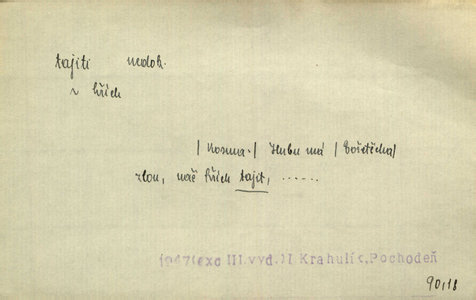 tajiti nedok.
v hřích
/Kosma./ Hubu má /Božetěcha/
zlou, náš hřích tajit, ......
1947(exc III.vyd.)I Krahulík,Pochodeň
90,18